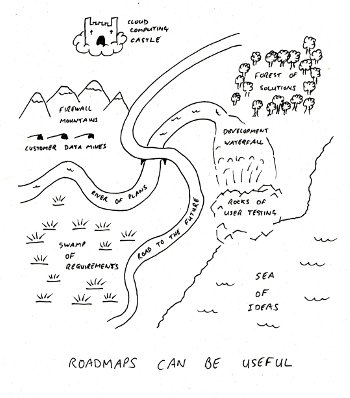 CLOUD
COMPUTING
CASTLE
FOREST OF
SOLUTIONS
FIREWALL
MOUNTAINS
CUSTOMER DATA MINES
DEVELOPMENT
WATERFALL
RIVER OF PLANS
ROCKS OF
USER TESTING
ROAD TO THE FUTURE
SWAMP
OF
REQUIREMENTS
SEA
OF
IDEAS
ROADMAPS CAN BE USEFUL